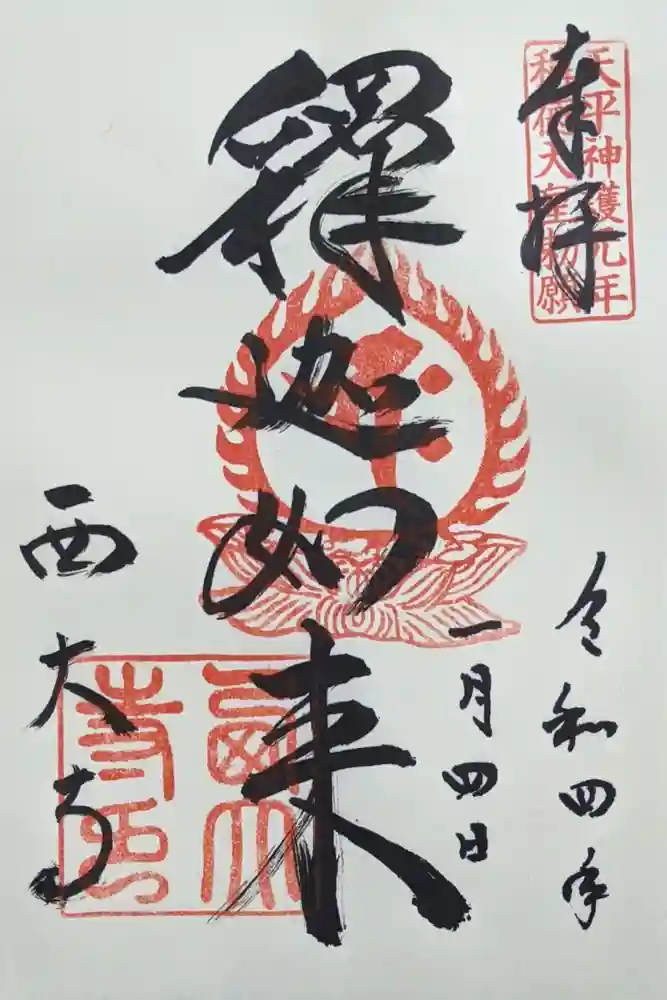 奉拝
天平神護元年
称徳天皇勅願
令和四年
一月四日
釋迦如来
西大寺
西大
寺印